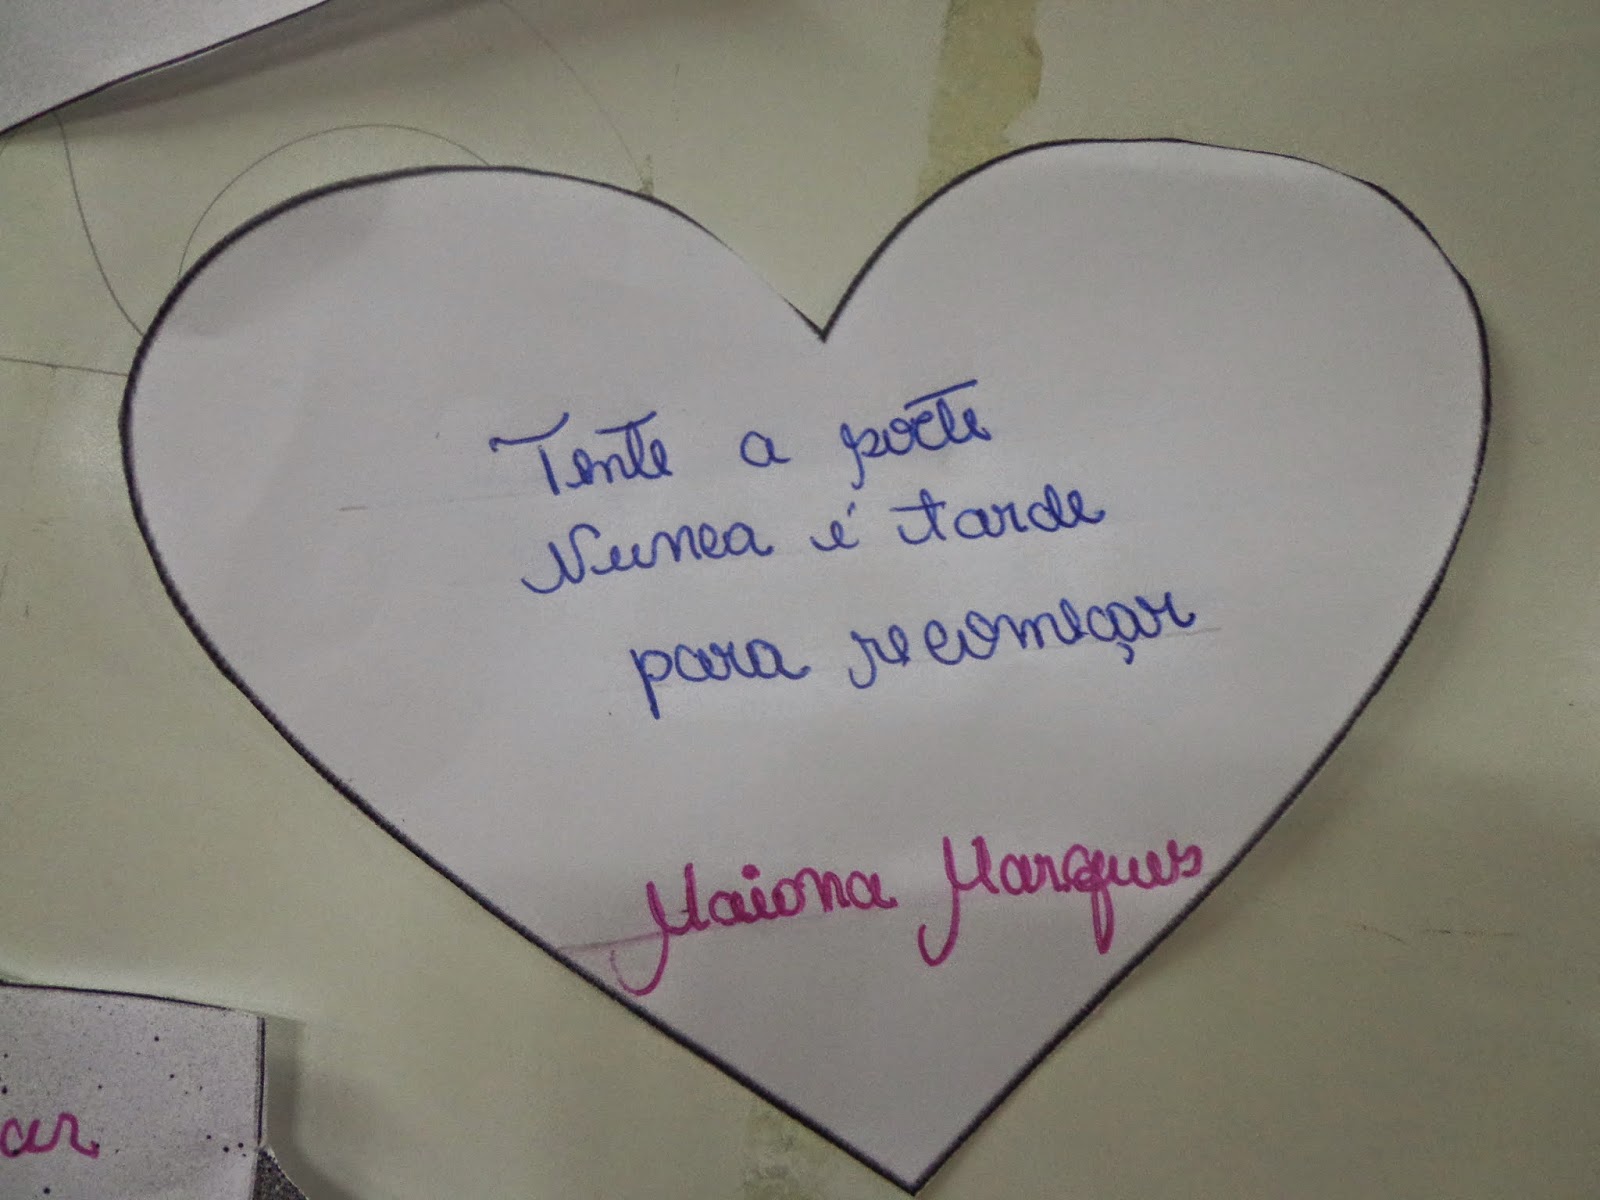 Tente a
Nunca é tarde
para recomeçar
Maiona Marques
ar